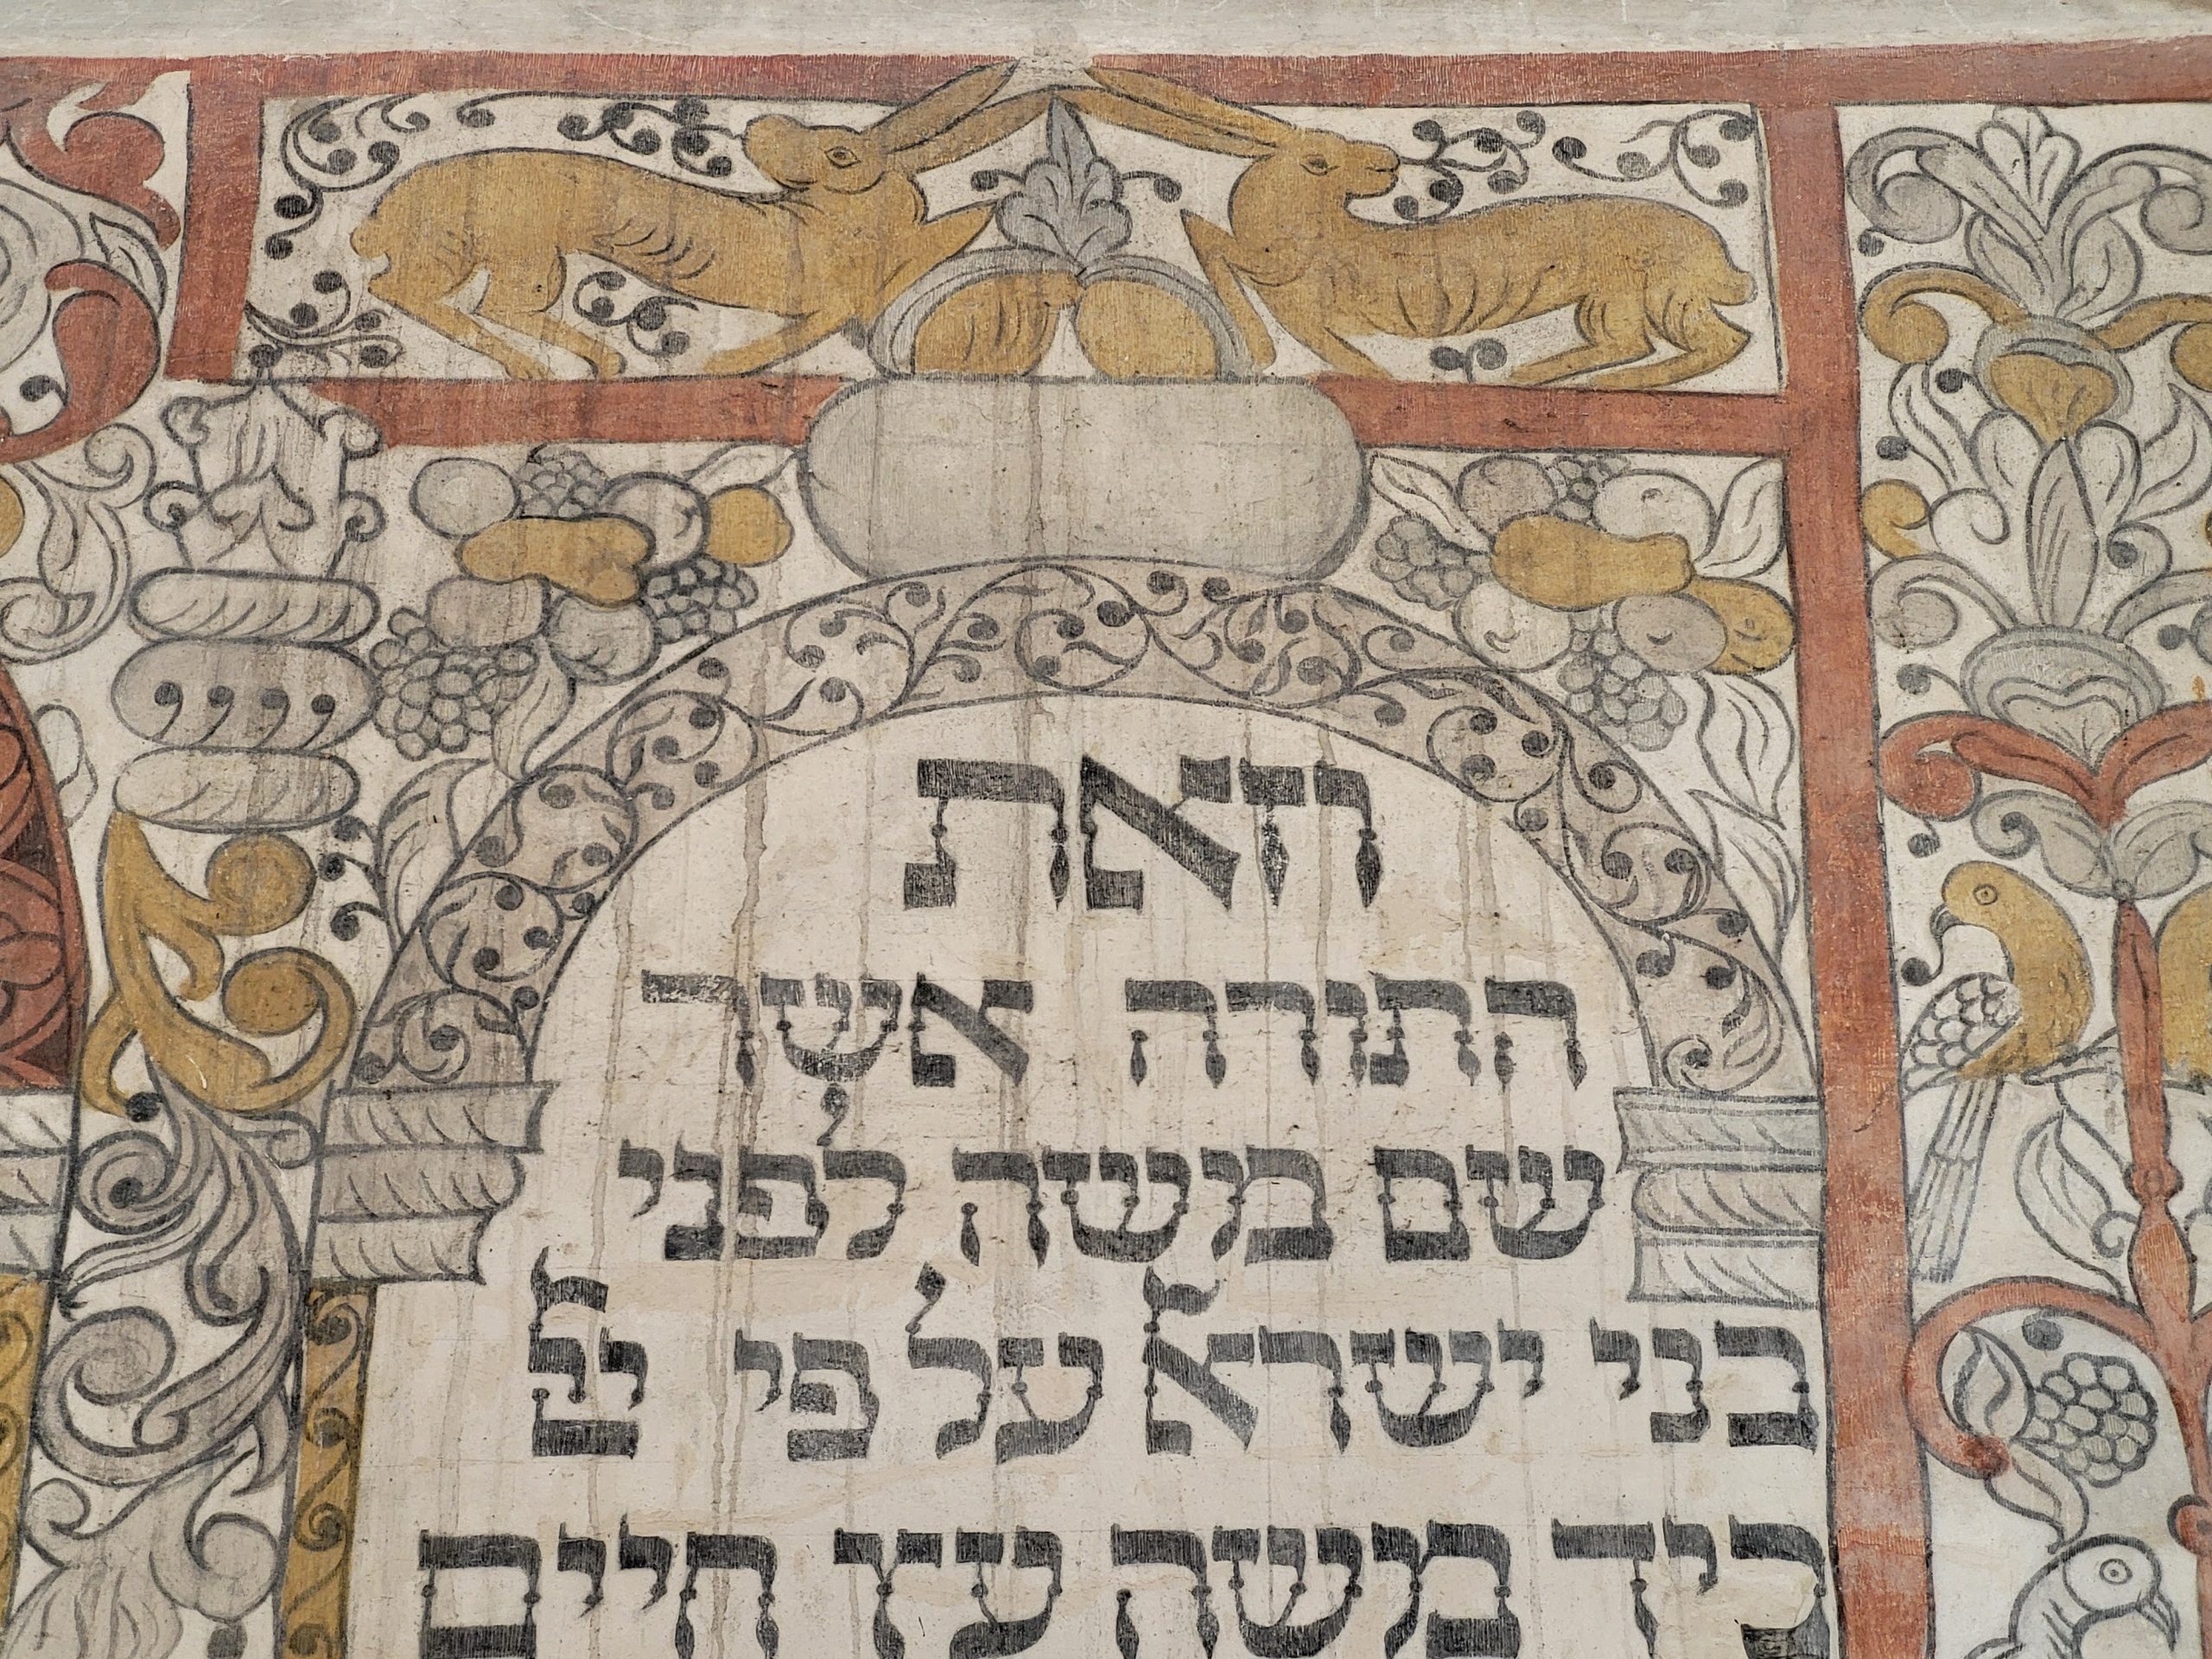 וזאת
התורה אשר
שם משה לפני
בני ישראל על פי
ביד משה עץ חיים